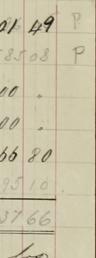 01 49 P
85 08 P
00 .
00 .
66 80
95 10
37 66